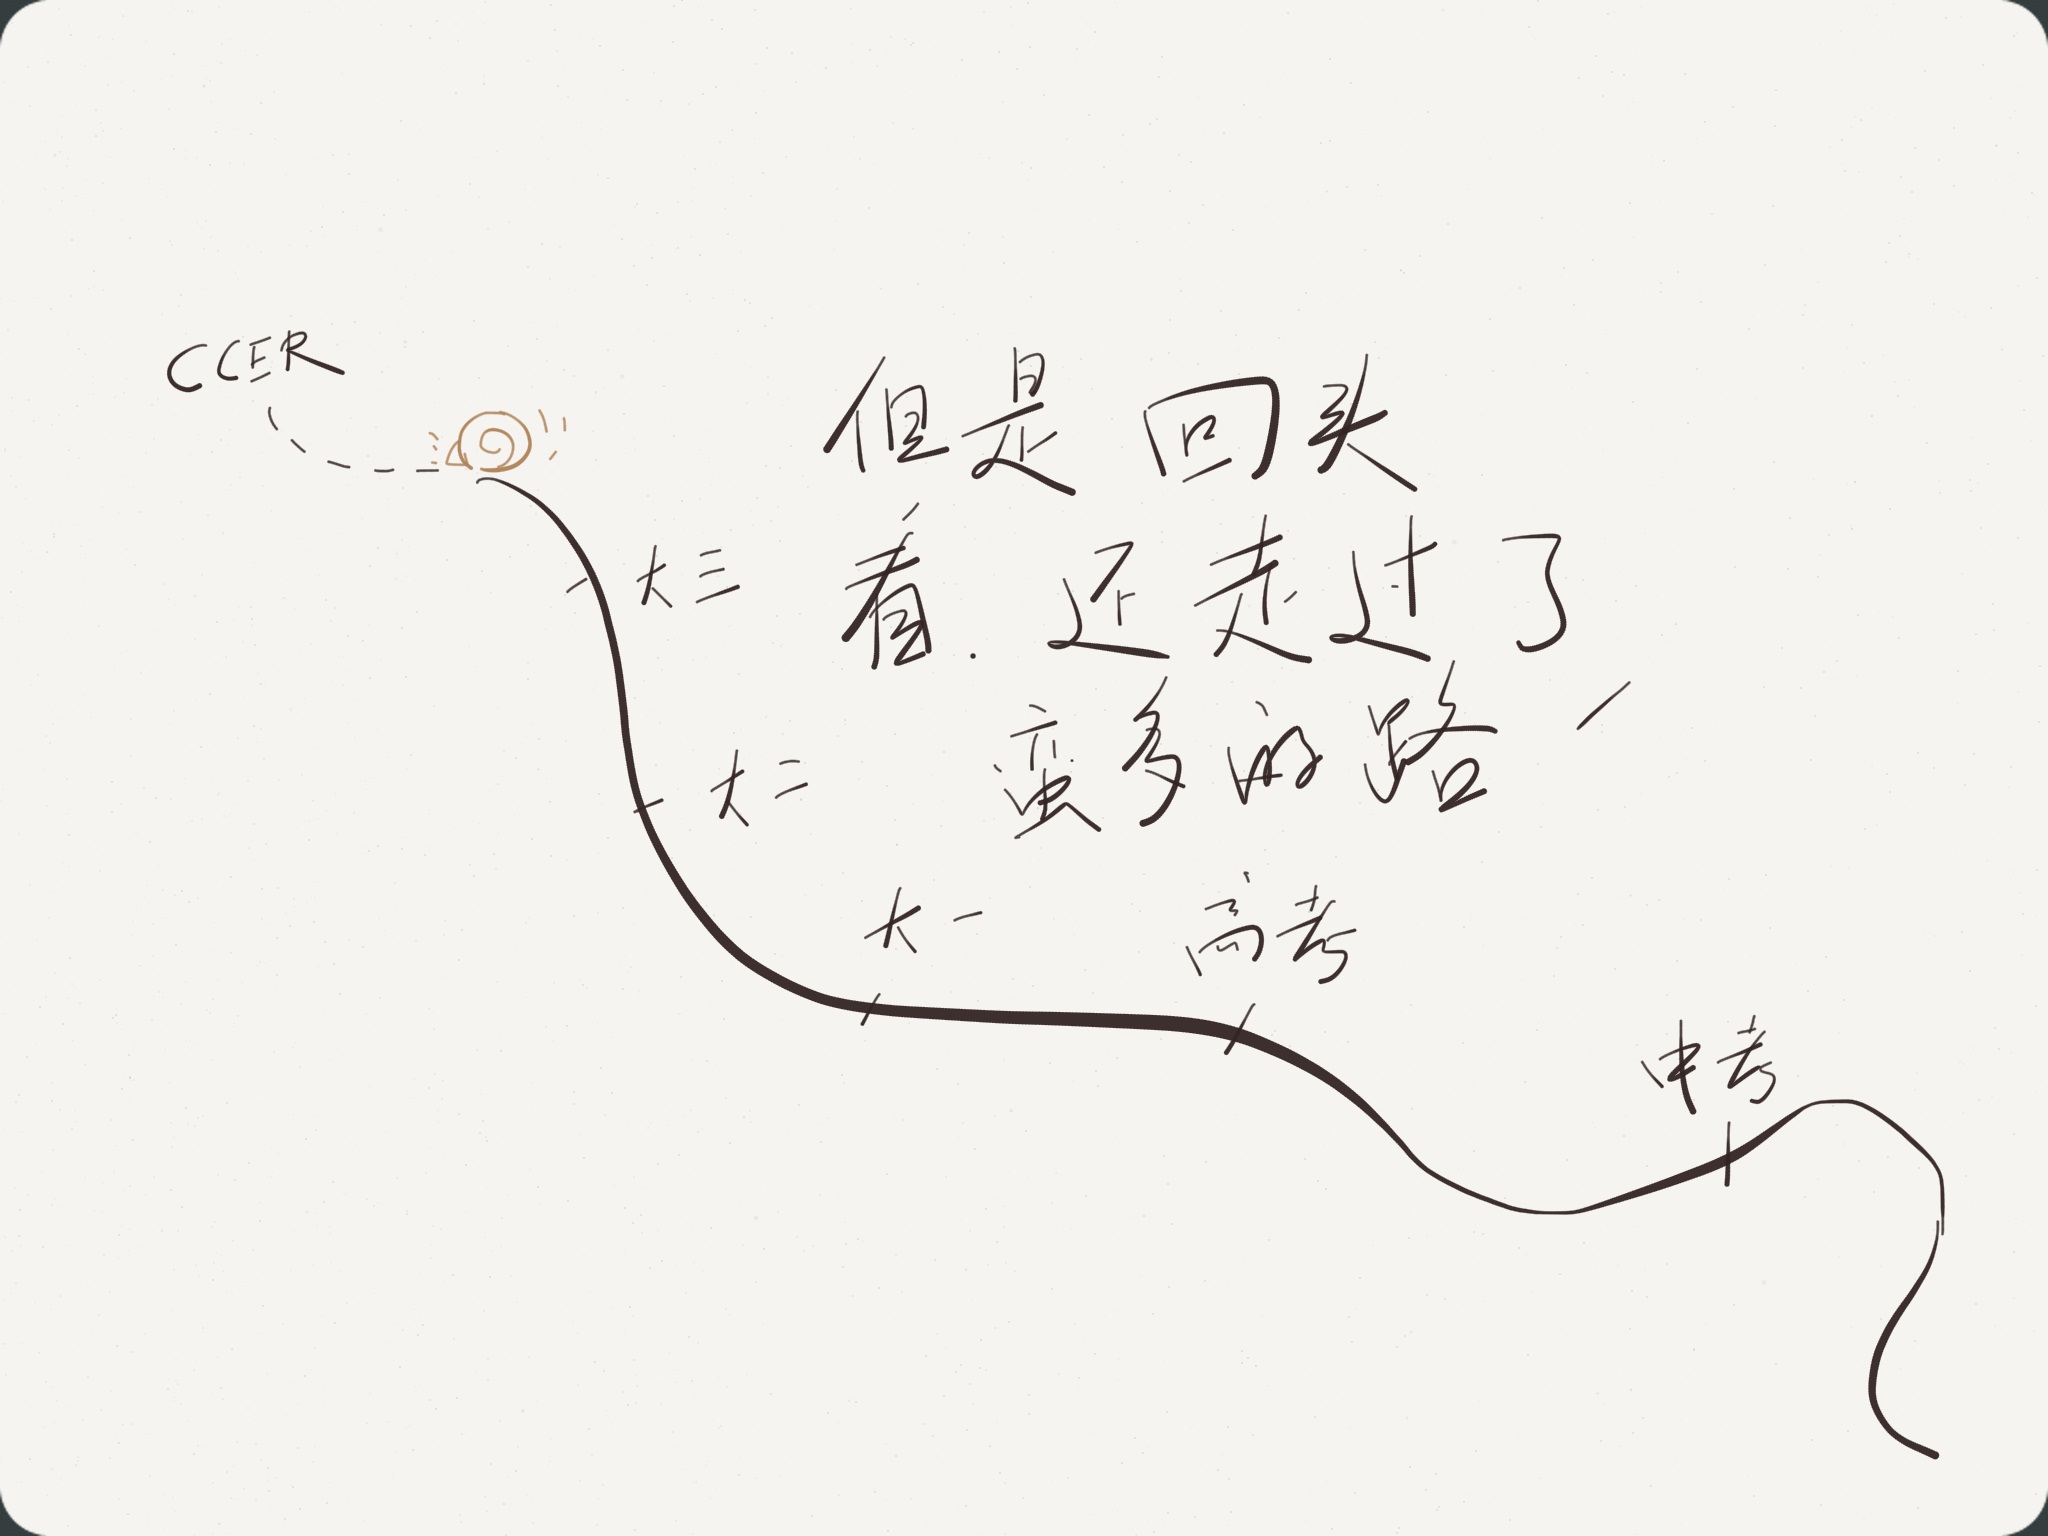 CCER
但是回头
看.还走过了
蛮多的路
大三
大二
大一
高考
中考